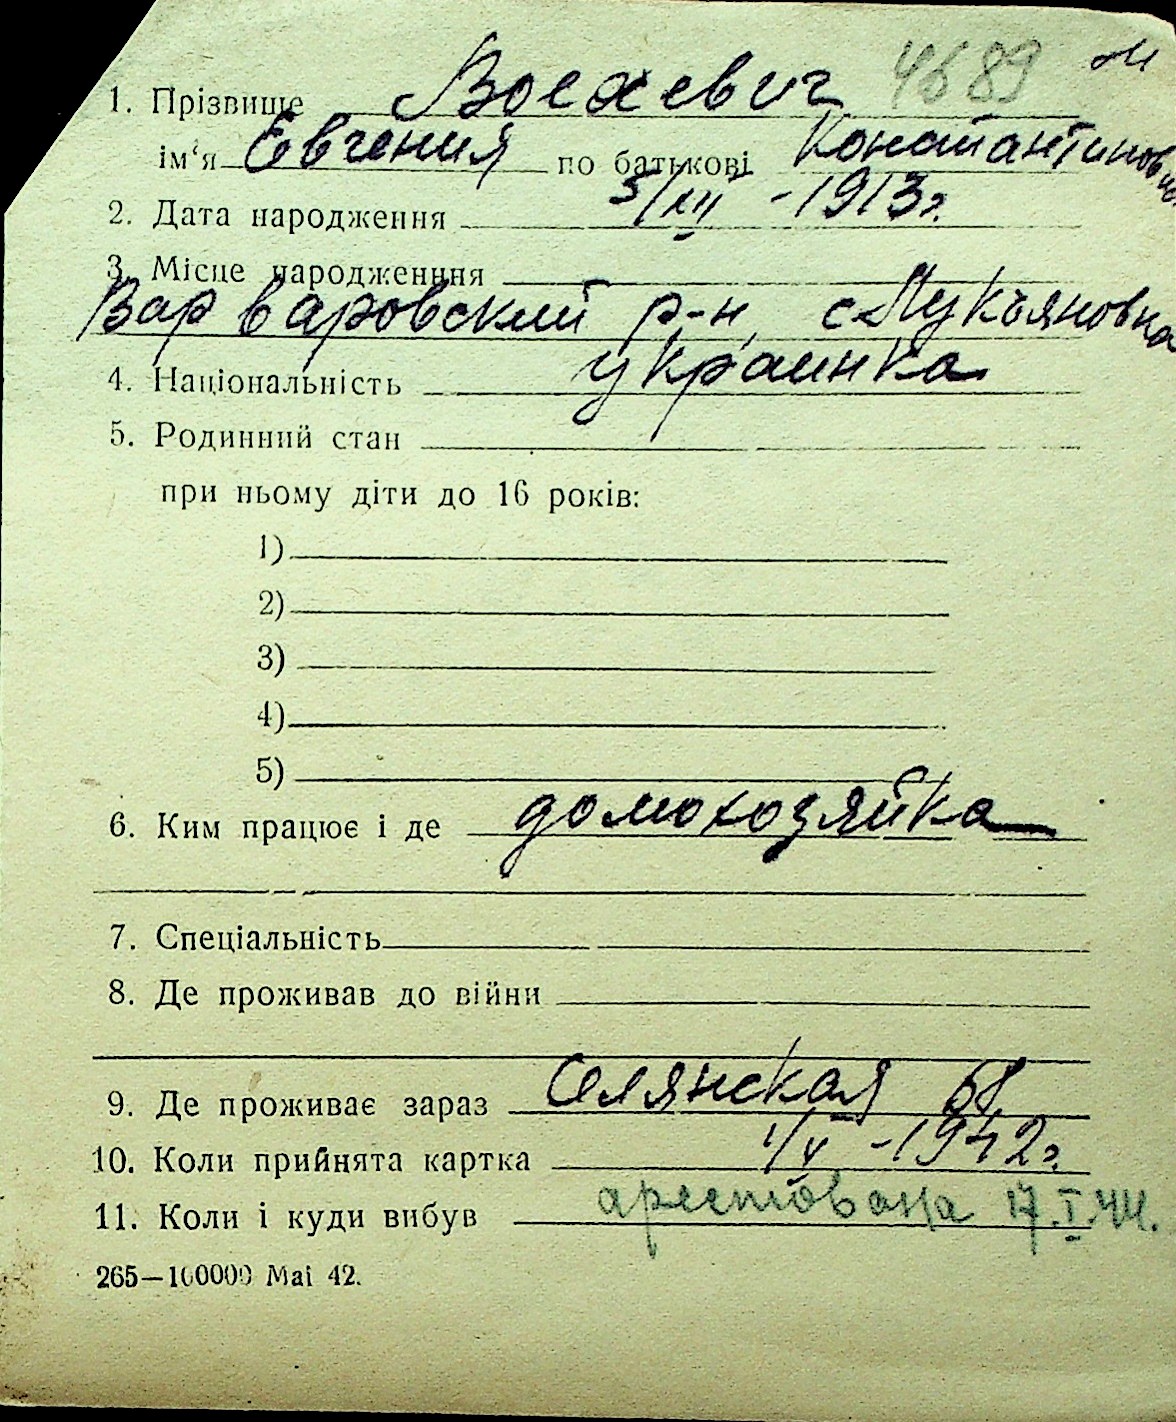 4689
1. Прізвище Воехевич
ім‘я Евгения по батькові Константиновна
2. Дата народження 5/III -1913г.
3. Місце народженння
Варваровский р-н, с Лукъяновка
4. Національність украинка
5. Родинний стан
при ньому діти до 16 років:
1)
2)
3)
4)
5)
6. Ким працює і де домохозяйка
7. Спеціальність
8. Де проживав до війни
9. Де проживає зараз Селянская 68
10. Коли прийнята картка 1/V -1942г.
11. Коли і куди вибув арестована 17.I.44.
265—100000 Mai 42.